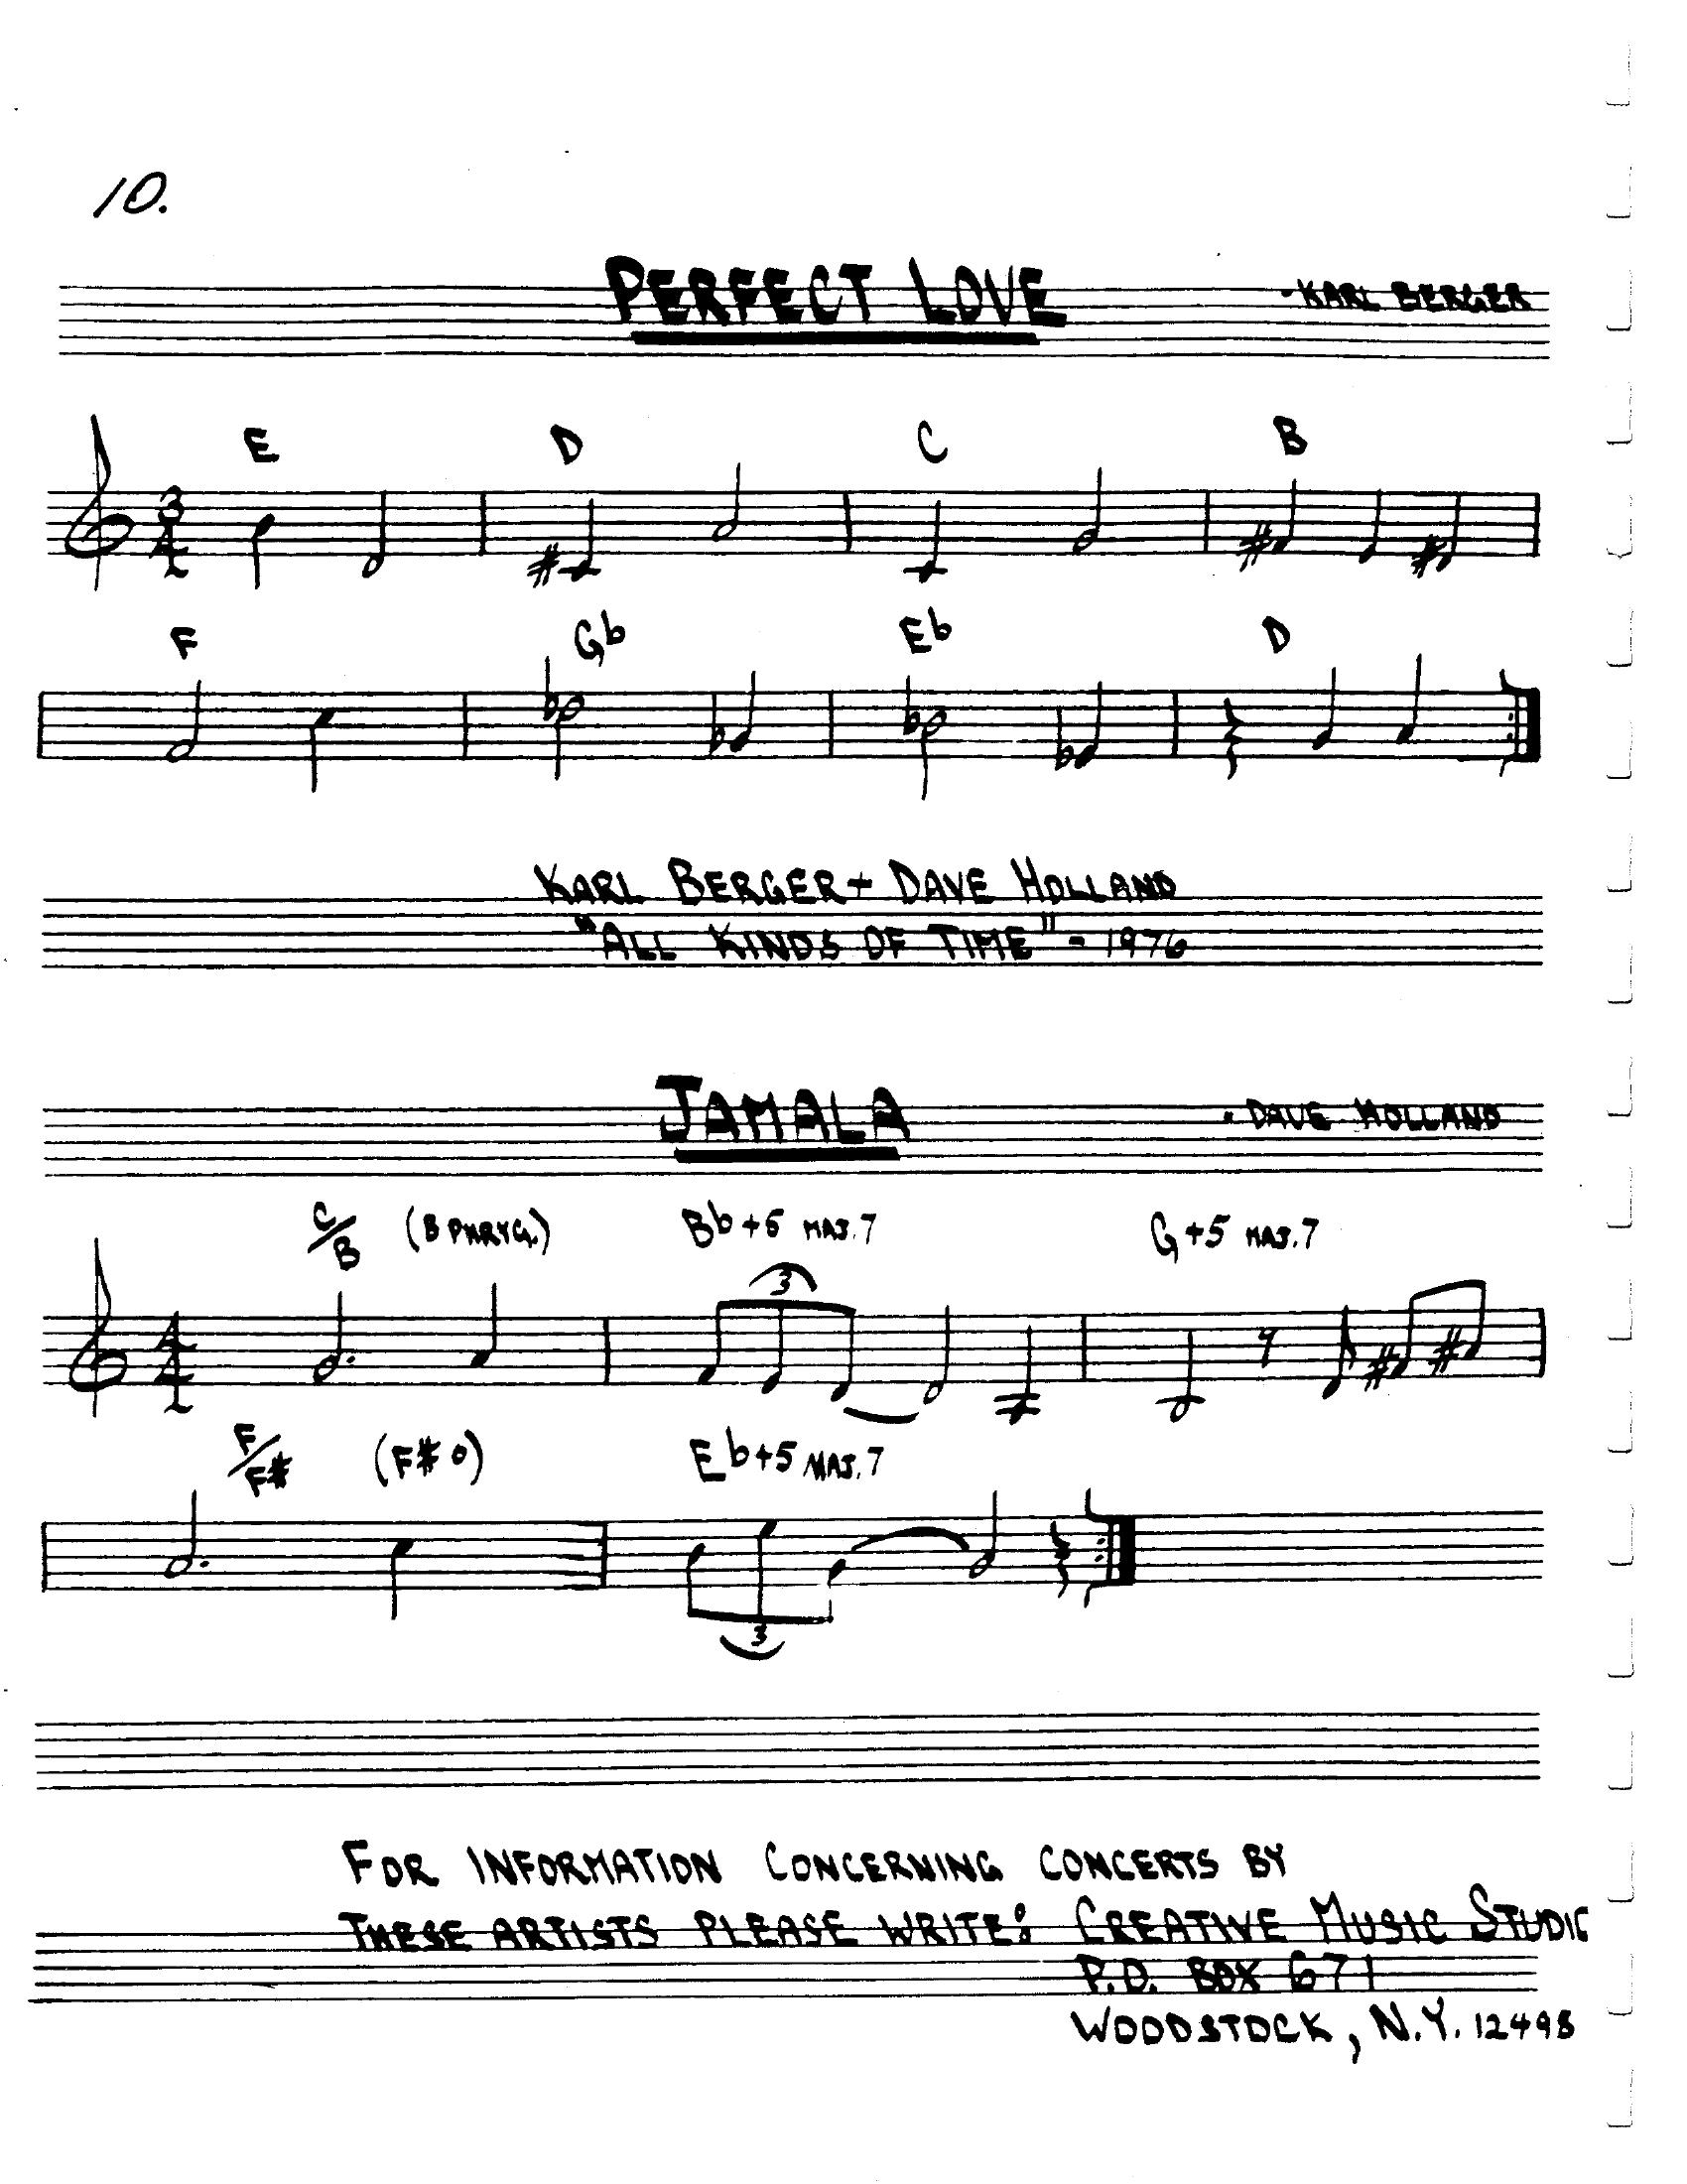 10.
PERFECT LOVE - KARL BERGER
E D C B
3/4
F Gb Eb D
KARL BERGER + DAVE HOLLAND
"ALL KINDS OF TIME" - 1976
JAMALA - DAVE HOLLAND
C/B (B PHRYG.) Bb+5 MAJ.7 G+5 MAJ.7
3
4/4
F/F# (F#o) Eb+5 MAJ.7
3
FOR INFORMATION CONCERNING CONCERTS BY
THESE ARTISTS PLEASE WRITE: CREATIVE MUSIC STUDIO
P.O. BOX 671
WOODSTOCK, N.Y. 12498